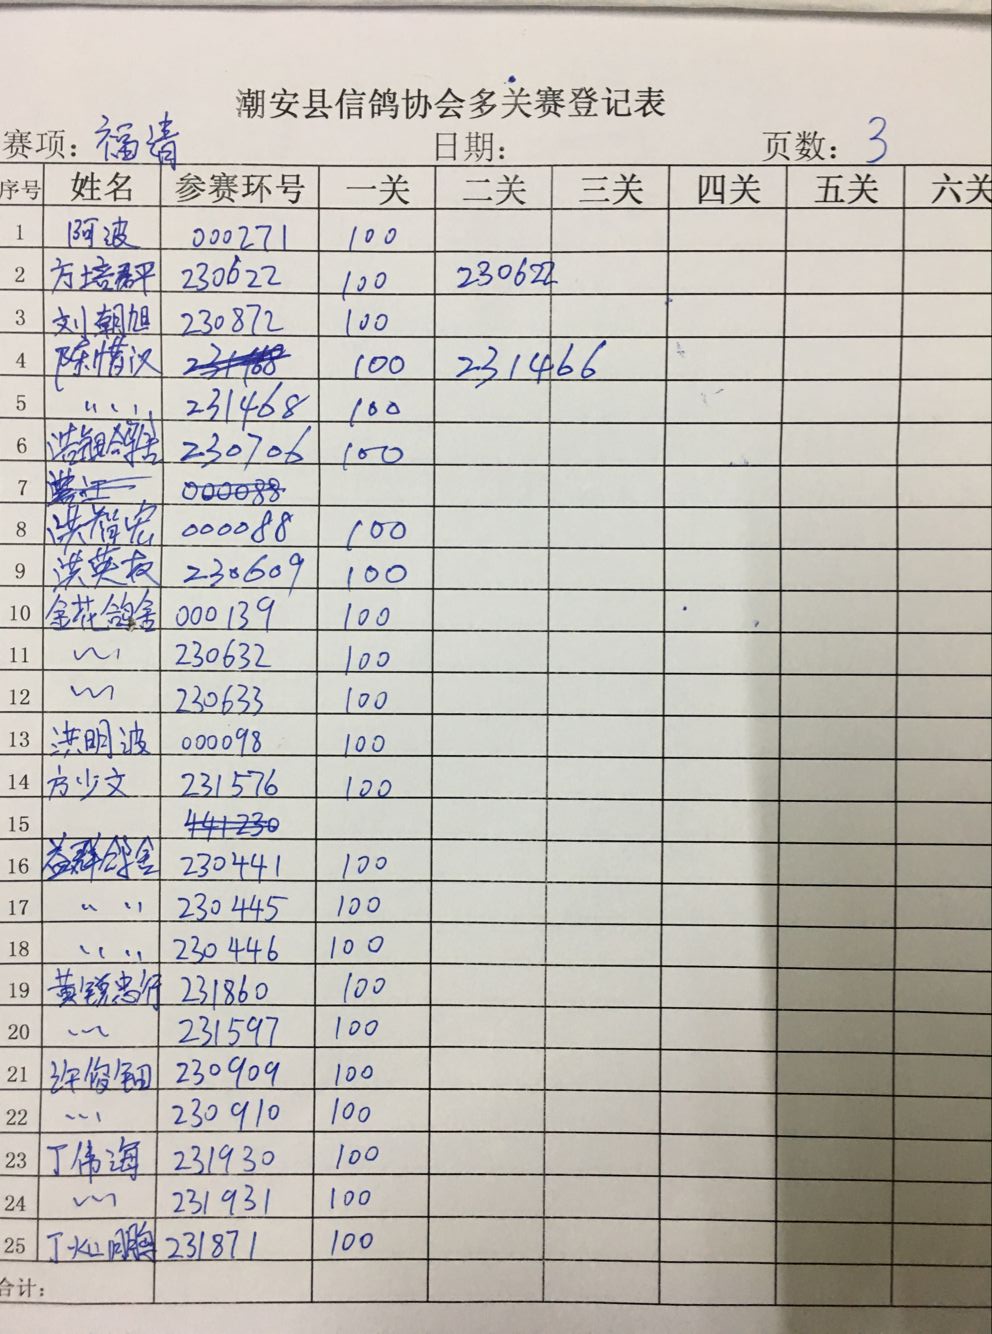 潮安县信鸽协会多关赛登记表
赛项：福清 日期： 页数：3
序号 姓名 参赛环号 一关 二关 三关 四关 五关 六关
1 阿波 000271 100
2 方培群平 230622 100 230622
3 刘朝旭 230872 100
4 陈惜汉 100 231466
5 〃 〃 231468 100
6 230706 100
7 000088
8 洪智宏 000088 100
9 洪英枝 230609 100
10 金花鸽舍 000139 100
11 〃 230632 100
12 〃 230633 100
13 洪明波 000098 100
14 方少文 231576 100
15 441230
16 益群鸽舍 230441 100
17 〃 〃 230445 100
18 〃 〃 230446 100
19 231860 100
20 〃 231597 100
21 许俊钿 230909 100
22 〃 230910 100
23 丁伟海 231930 100
24 〃 231931 100
25 231871 100
合计：